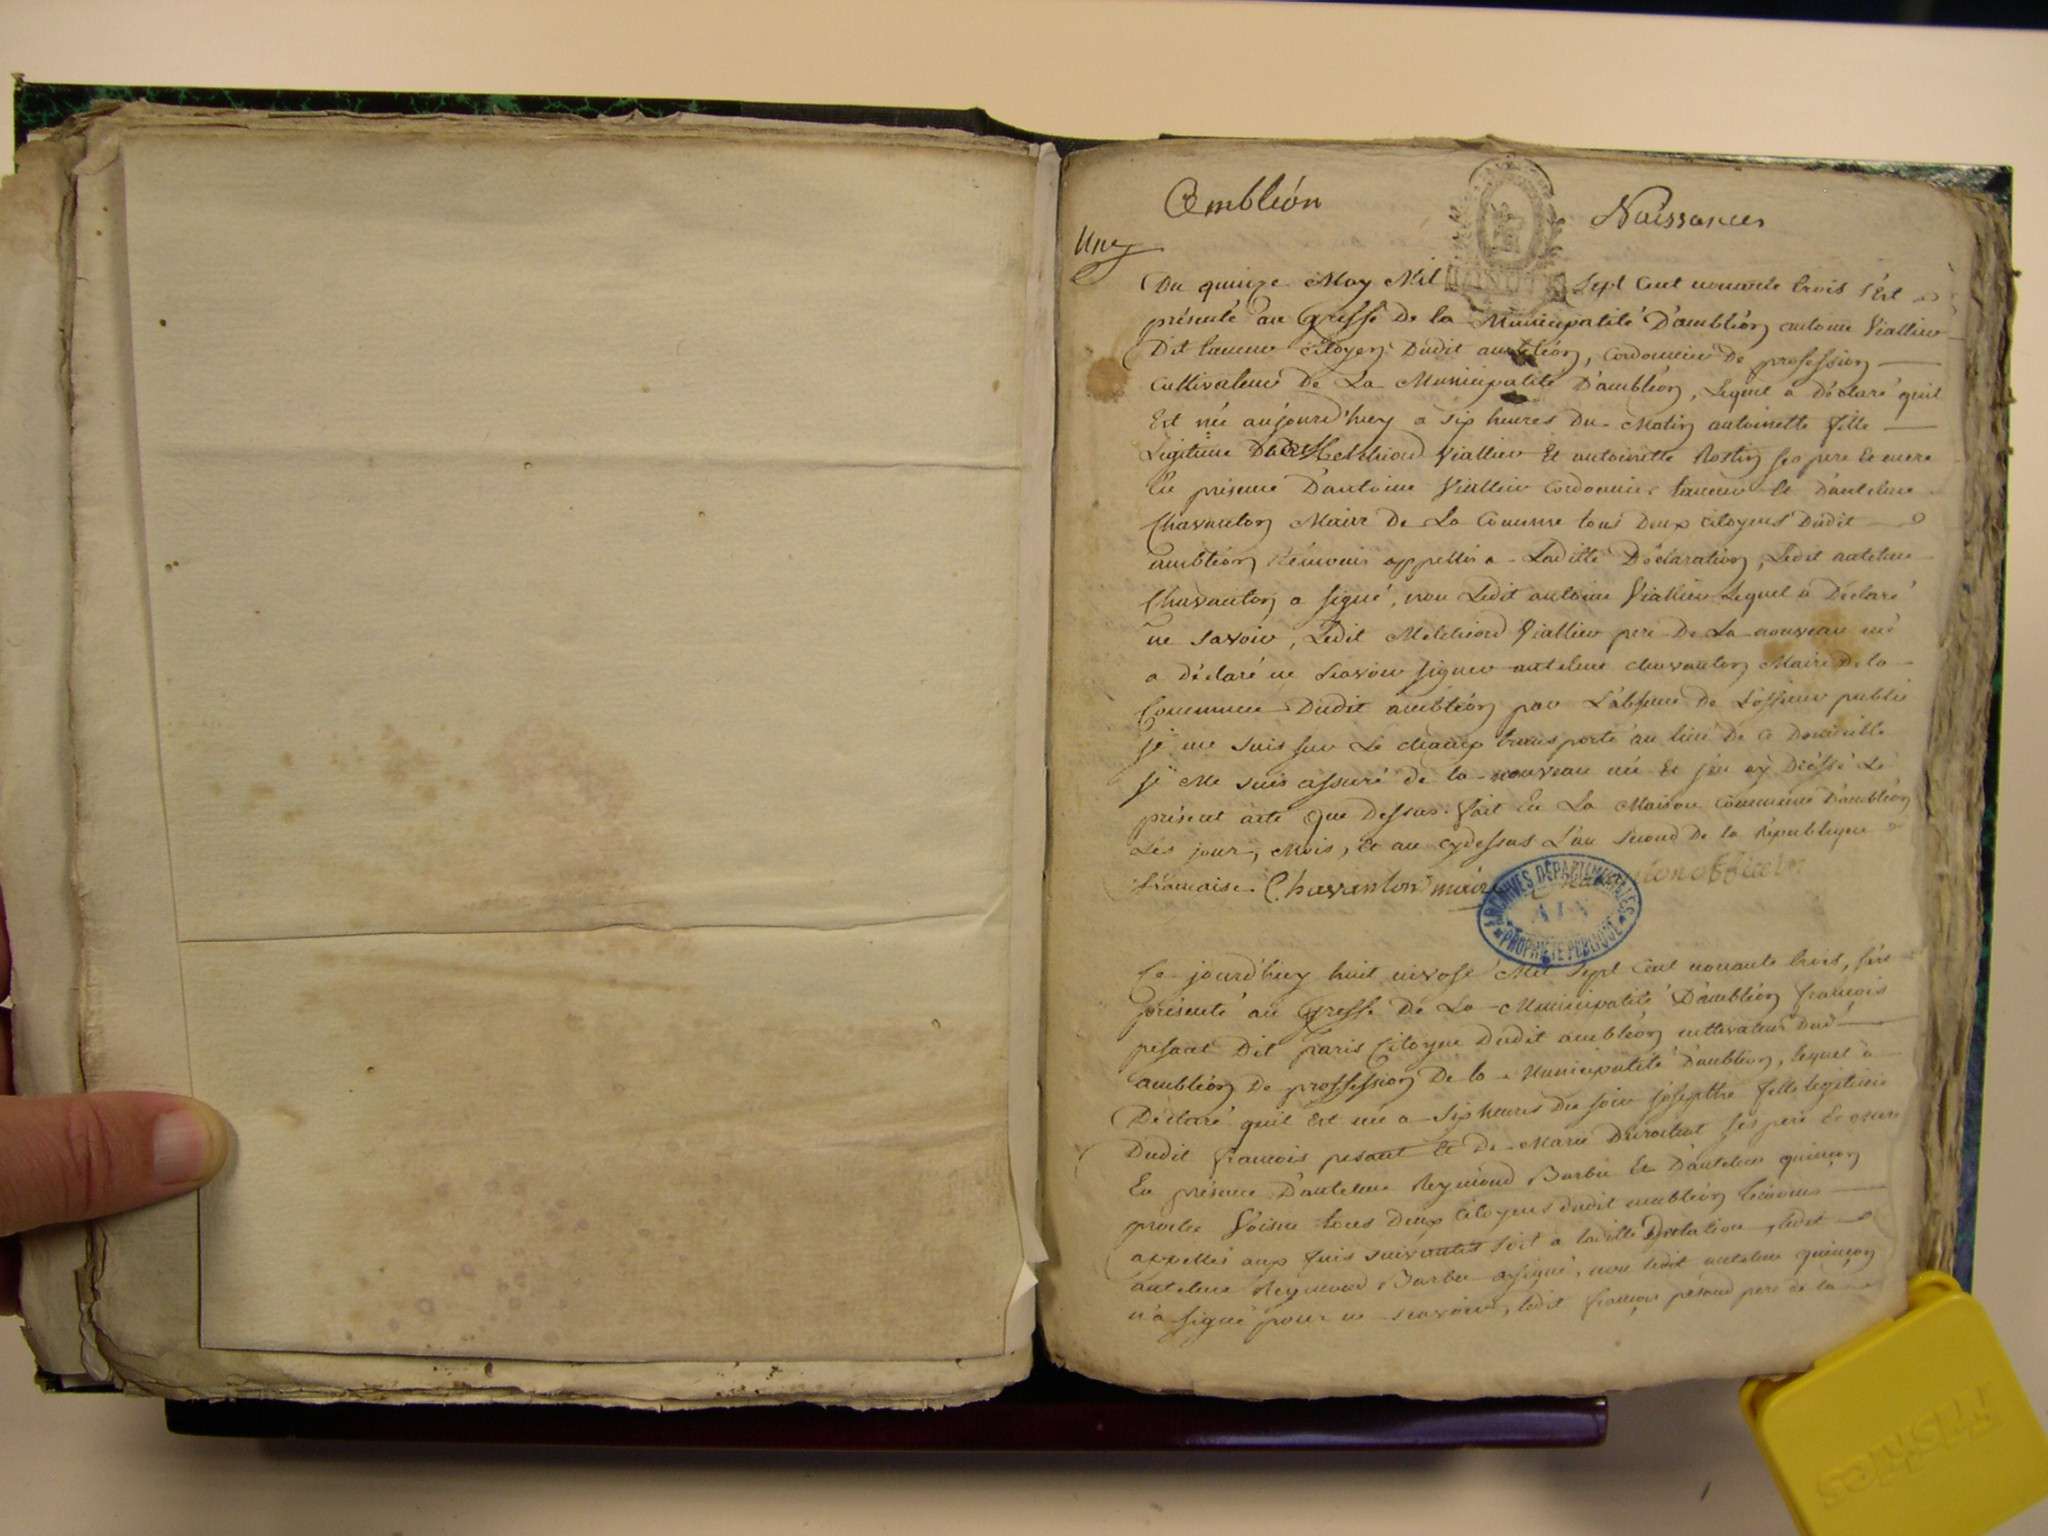 Ambléon
Naissances
Une
Du quinze May Mil Sept Cent nonante trois s'Est
présenté au Greffe De la Municipalité D'ambléon antoine Viallier
Dit taneur Citoyen Dudit ambléon, Cordonnier De profession
Cultivateur De La Municipalité D'ambléon, Lequel a Déclaré quil
Est née aujourd'huy a six heures Du Matin antoinette fille
Légitime De Melchiord Viallier Et antoinette Rostin ses pere Et mere
En présence D'antoine Viallier Cordonnier taneur Et D'antelme
Chavanton Maire De La Commune tous Deux Citoyens Dudit
ambléon témoins appellés a Laditte Déclaration, Ledit antelme
Chavanton a signé, non Ledit antoine Viallier Lequel a Déclaré
ne savoir, Ledit Melchiord Viallier pere De La nouveau né
a déclaré ne scavoir signer antelme chavanton Maire De la
Commune Dudit ambléon par L'absence De L'officier public
je me suis sur Le champ transporté au lieu De Ce Domicille
je Me suis assuré de la nouveau né Et j'en ay Dréssé Le
présent acte Que Dessus. Fait En La Maison Commune D'ambléon
Les jour, Mois, Et an cydessus L'an Second De la République
francaise. Chavanton maire
ARCHIVES DÉPARTEMENTALES
AIN
PROPRIÉTÉ PUBLIQUE
Ce jourd'huy huit nivose Mil Sept Cent nonante trois, s'est
présenté au Greffe De La Municipalité D'ambléon françois
pesant Dit paris Citoyen Dudit ambléon cultivateur Dud
ambléon De proffession De la Municipalité D'ambléon, lequel a
Déclaré quil Est né a six heures Du soir joseph fille légitime
Dudit francois pesant Et De Marie ses pere Et mere
En présence D'antelme Reymond Barbier Et D'antelme quinson
proche Voisin tous Deux Citoyens dudit ambléon témoins
appellés aux fins suivantes soit a laditte , ledit
antelme Reymond Barbier a signé, non ledit antelme quinson
n'a signé pour ne scavoir, ledit françois pésant pere de la
Trishies